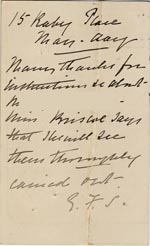 15 Raby Place
May-day
Many thanks for
instructions
Miss Briscoe says
that she will see
them thoroughly
carried out.
G. F. S.